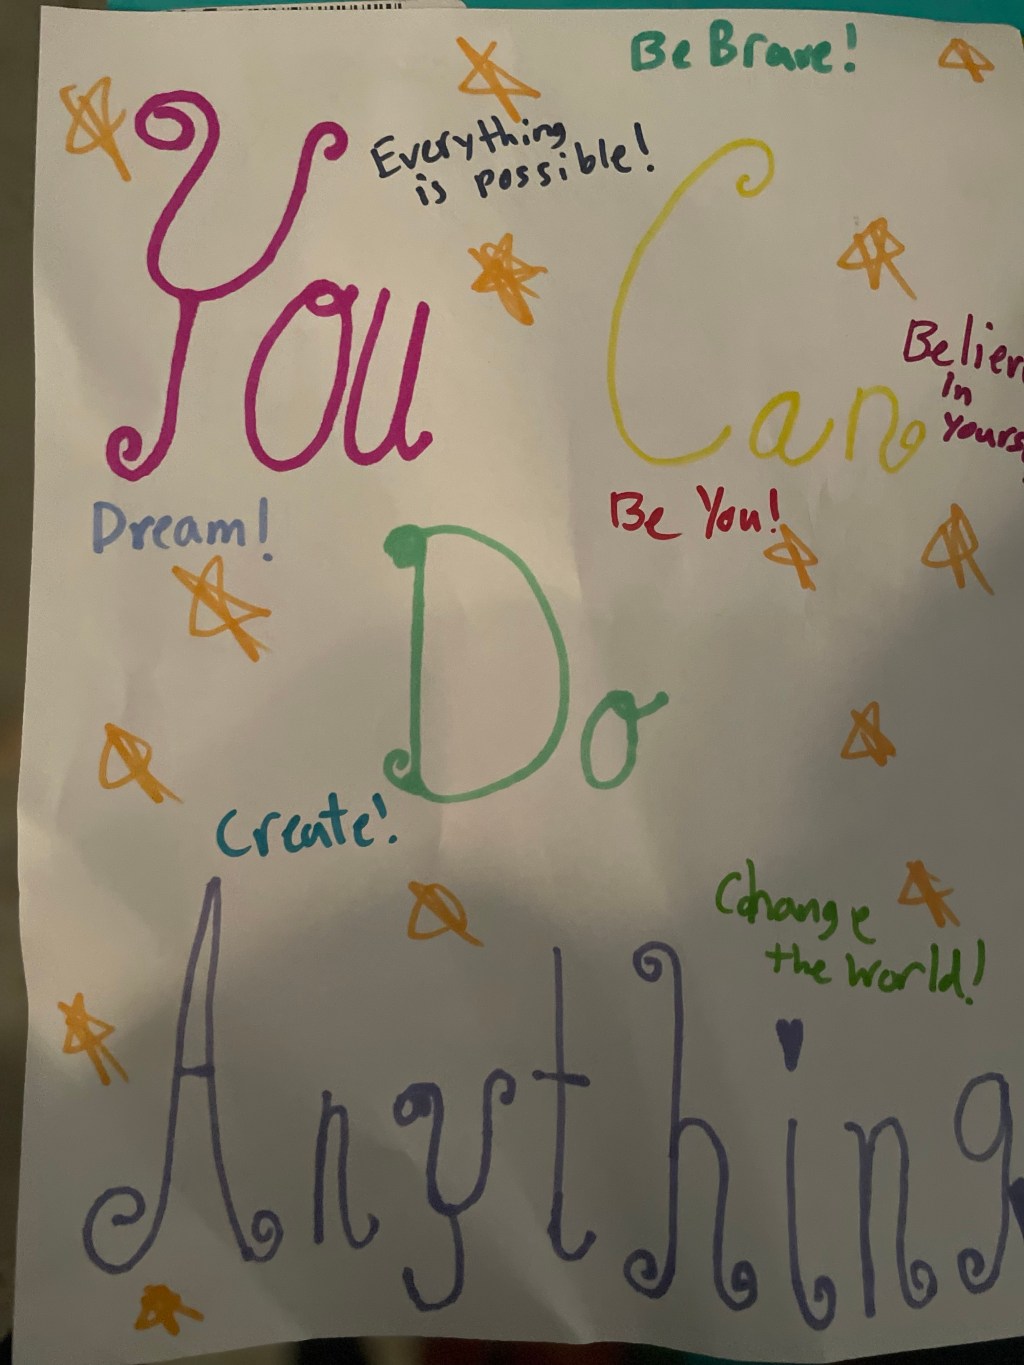 Be Brave!
Everything
is possible!
You Can
Believ
in
yours
Dream!
Be You!
Do
Create!
Change
the World!
Anything